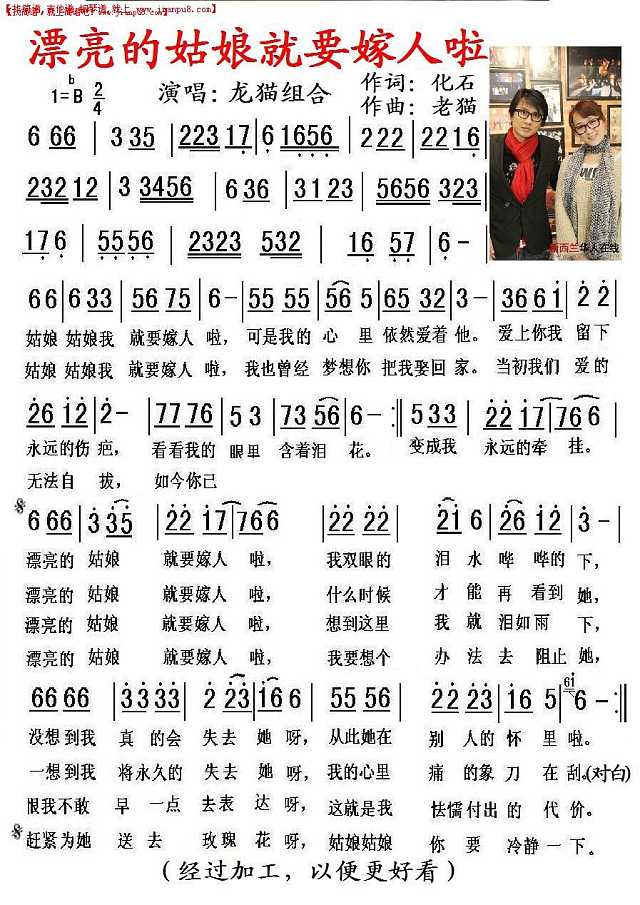 【找简谱，吉他谱，钢琴谱，就上 www.jianpu8.com 】
漂亮的姑娘就要嫁人啦
1=bB 2/4 演唱：龙猫组合 作词：化石
作曲：老猫
6 66 | 3 35 | 223 17 | 6 1656 | 222 | 22 16 |
232 12 | 3 3456 | 636 | 31 23 | 5656 323 |
17 6 | 55 56 | 2323 532 | 16 57 | 6 - |
新西兰华人在线
66 6 33 | 56 75 | 6 - | 55 55 | 56 5 | 65 32 | 3 - | 36 61 | 2 2 |
姑娘 姑娘我 就要嫁人 啦，可是我的 心 里 依然爱着 他。爱上你我 留下
姑娘 姑娘我 就要嫁人 啦，我也曾经 梦想你 把我娶回 家。当初我们 爱的
26 12 | 2 - | 77 76 | 5 3 | 73 56 | 6 - :|| 5 33 | 22 17 | 76 6 |
永远的伤 疤， 看看我的 眼里 含着泪 花。 变成我 永远的牵 挂。
无法自 拔， 如今你已
6 66 | 3 35 | 22 17 | 7 66 | 22 22 | 2 16 | 26 12 | 3 - |
漂亮的 姑娘 就要嫁人 啦， 我双眼的 泪 水 哗哗的 下，
漂亮的 姑娘 就要嫁人 啦， 什么时候 才 能 再 看到 她，
漂亮的 姑娘 就要嫁人 啦， 想到这里 我 就 泪如雨 下，
漂亮的 姑娘 就要嫁人 啦， 我要想个 办 法 去 阻止 她，
66 66 | 33 33 | 2 23 | 16 6 | 55 56 | 22 22 | 16 5 | 6 - :||
没想到我 真 的会 失去 她 呀，从此她在 别 人的 怀 里 啦。
一想到我 将永久的 失去 她 呀，我的心里 痛 的象 刀 在 刮。(对白)
恨我不敢 早 一点 去表 达 呀，这就是我 怯懦付出 的 代价。
赶紧为她 送 去 玫瑰 花 呀，姑娘姑娘 你 要 冷静 一 下。
(经过加工，以便更好看)